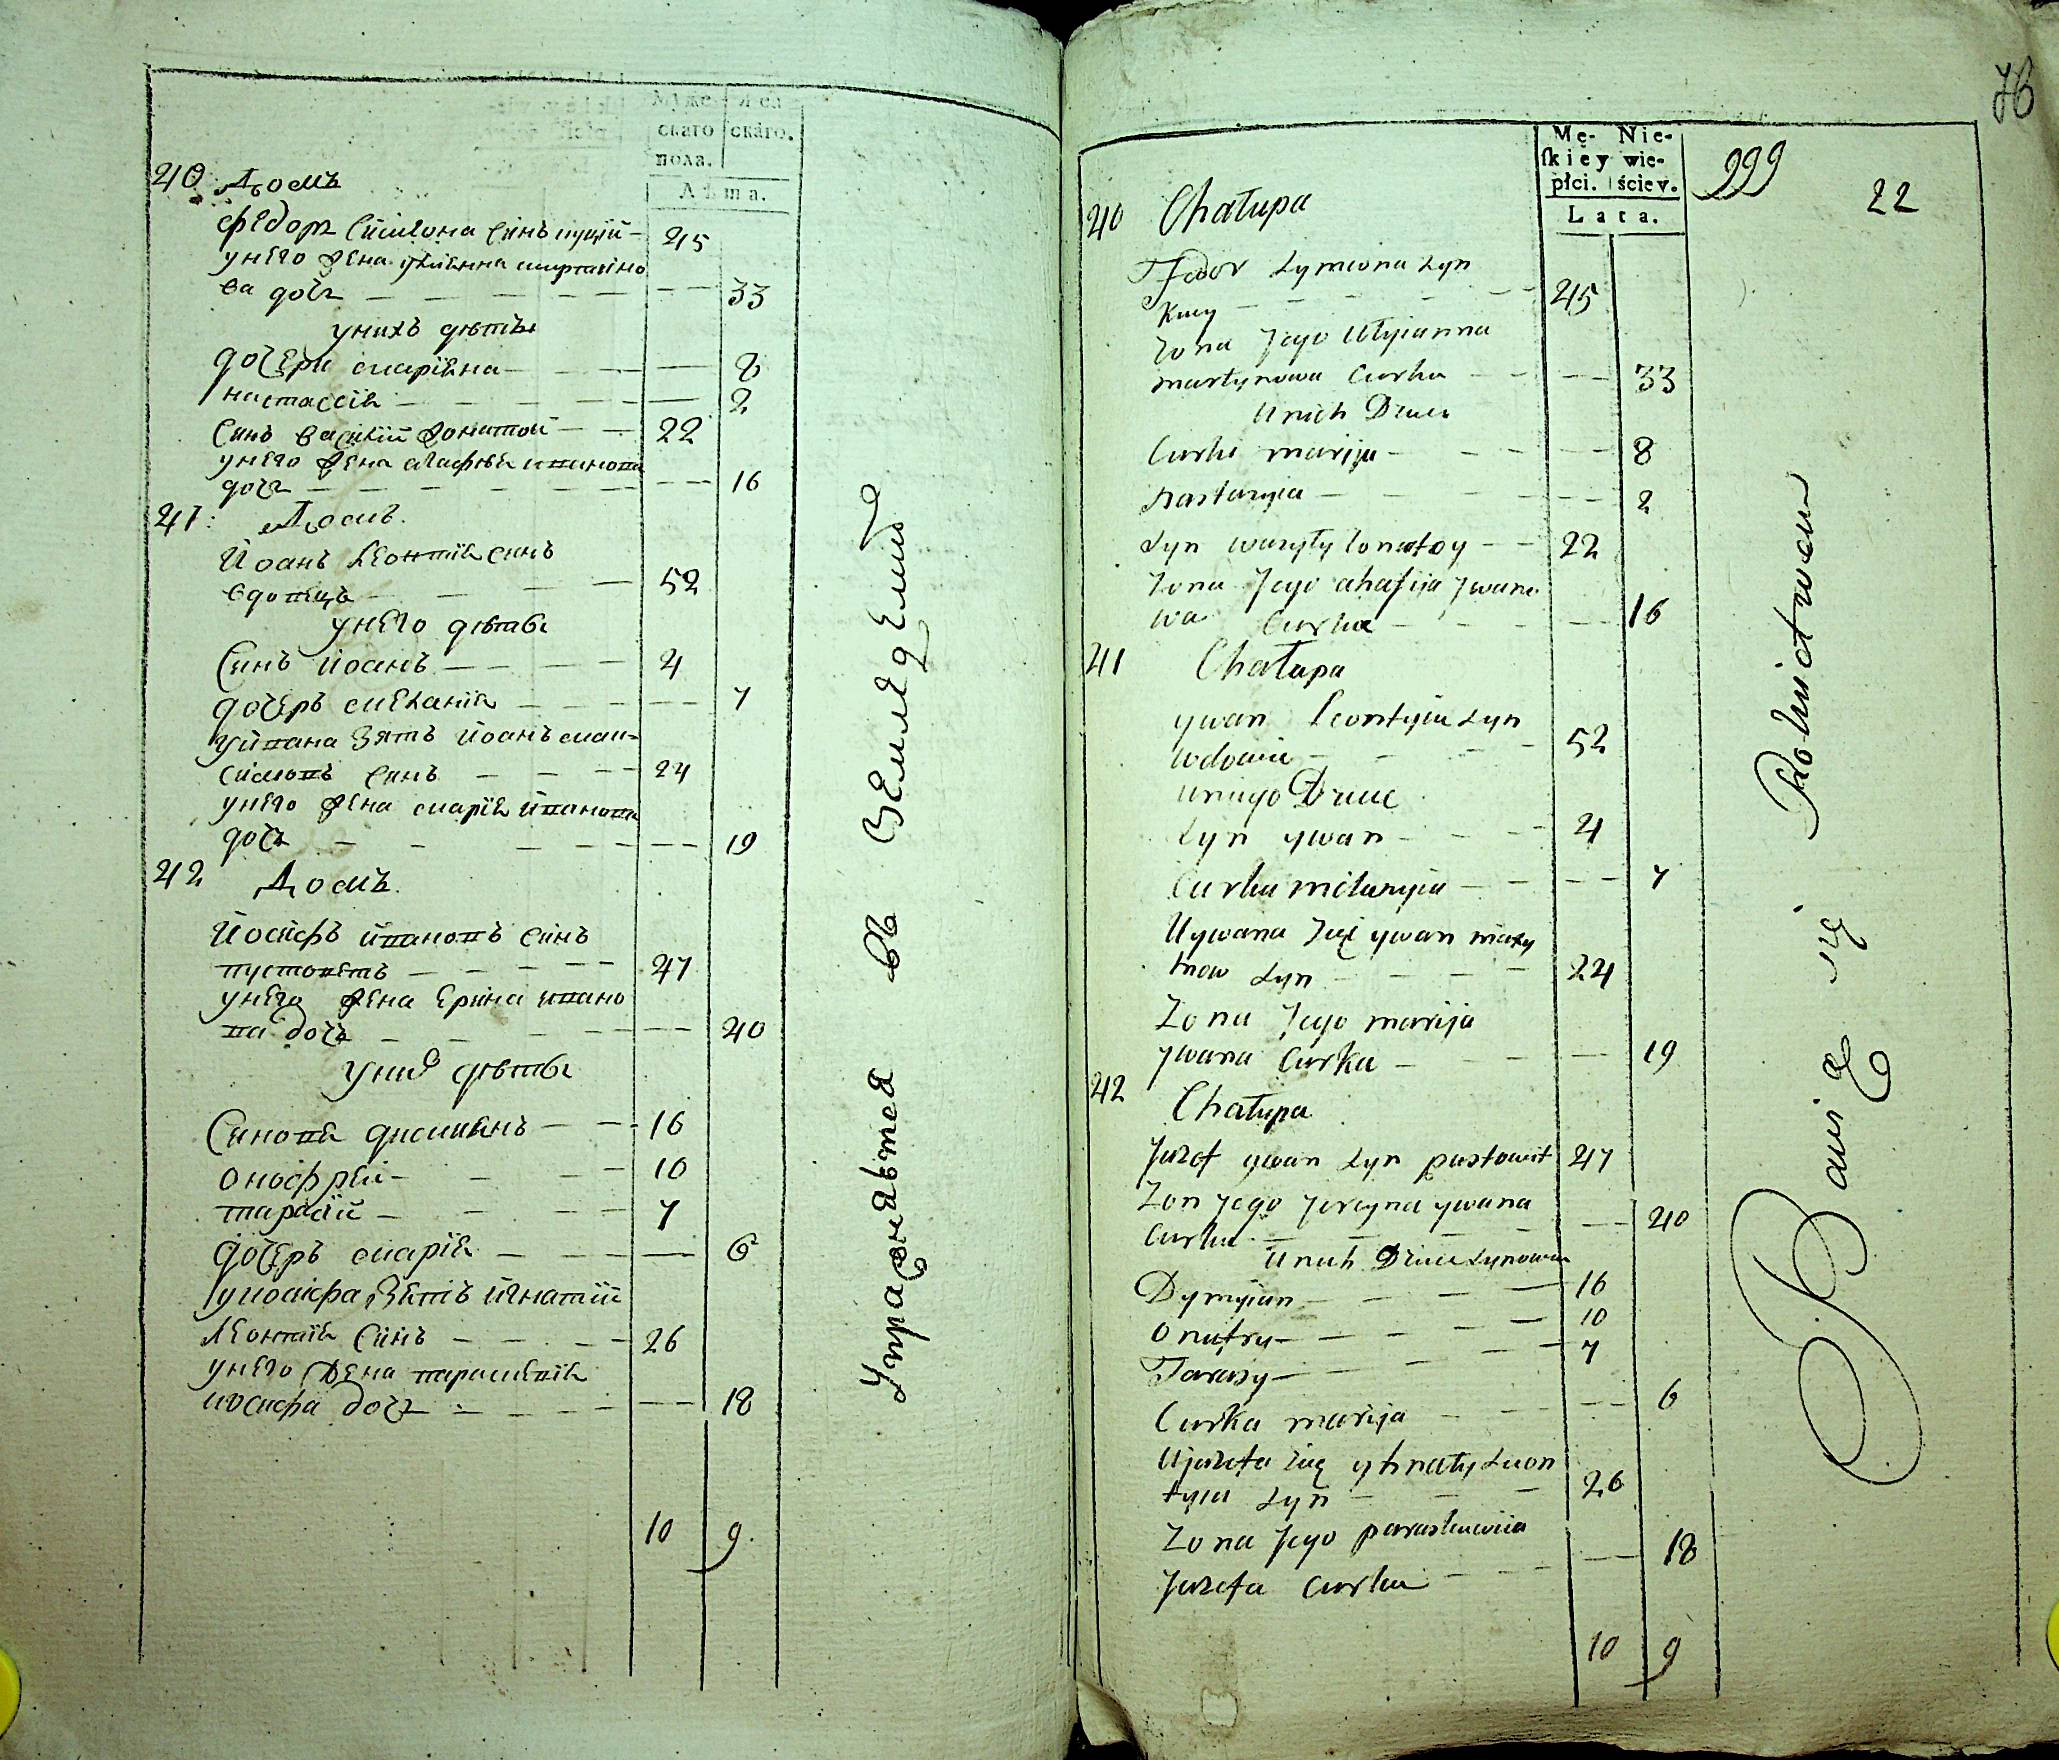 Муже- Жен-
скаго скаго.
пола.
Лѣта.
40 Домъ
Федоръ Симеона синъ куцій — 45
унего жена улиенна мартино
ва дочъ — 33
унихъ дѣты
дочери мариена — 8
настассіи — 2
Синъ василій жонатой — 22
унего жена агафия иванова
дочъ — 16
41 Домъ.
Иоанъ леонтіи синъ
вдовецъ — 52
унего дѣты
Синъ иоанъ — 4
дочеръ меланія — 7
уивана зять иоанъ мак-
симовъ синъ — 24
унего жена марія иванова
дочъ — 19
42 Домъ.
Иосифъ ивановъ синъ
пустоветъ — 47
унего жена ерина ивано
ва дочъ — 40
уних дѣты
Синовя димиянъ — 16
оноифреи — 10
тарасій — 7
дочеръ марія — 6
уиосифа зятъ игнатій
леонтіи синъ — 26
унего жена параскевія
иосифа дочъ — 18
10 9
Упражняется въ земледелии
76
Mę- Nie-
skiey wie-
płci. ściey.
Lata.
999 22
40 Chałupa
Fedor Symeona Syn
Kucy — 45
Zona Jego Ulyianna
martynowa Curka — 33
Unich Dzieci
Curki marija — 8
Nastasyia — 2
Syn wasyly Zonatoy — 22
Zona Jego ahafija Jwano
wa Curka — 16
41 Chałupa
ywan Leontyia Syn
wdowiec — 52
Uniego Dziec
Syn ywan — 4
Curka melanyia — 7
Uywana Zięć ywan maxy
mow Syn — 24
Zona Jego marija
ywana Curka — 19
42 Chałupa
Juzef ywan Syn pustowit 47
Zon Jego Jeryna ywana
Curka — 40
Unich Dzieci Synowie
Dymyian — 16
Onufry — 10
Tarasy — 7
Curka marija — 6
Ujuzefa zięć yhnaty Leon
tyia Syn — 26
Zona Jego paraskewia
Juzefa Curka — 18
10 9
Bawią się Rolnictwem